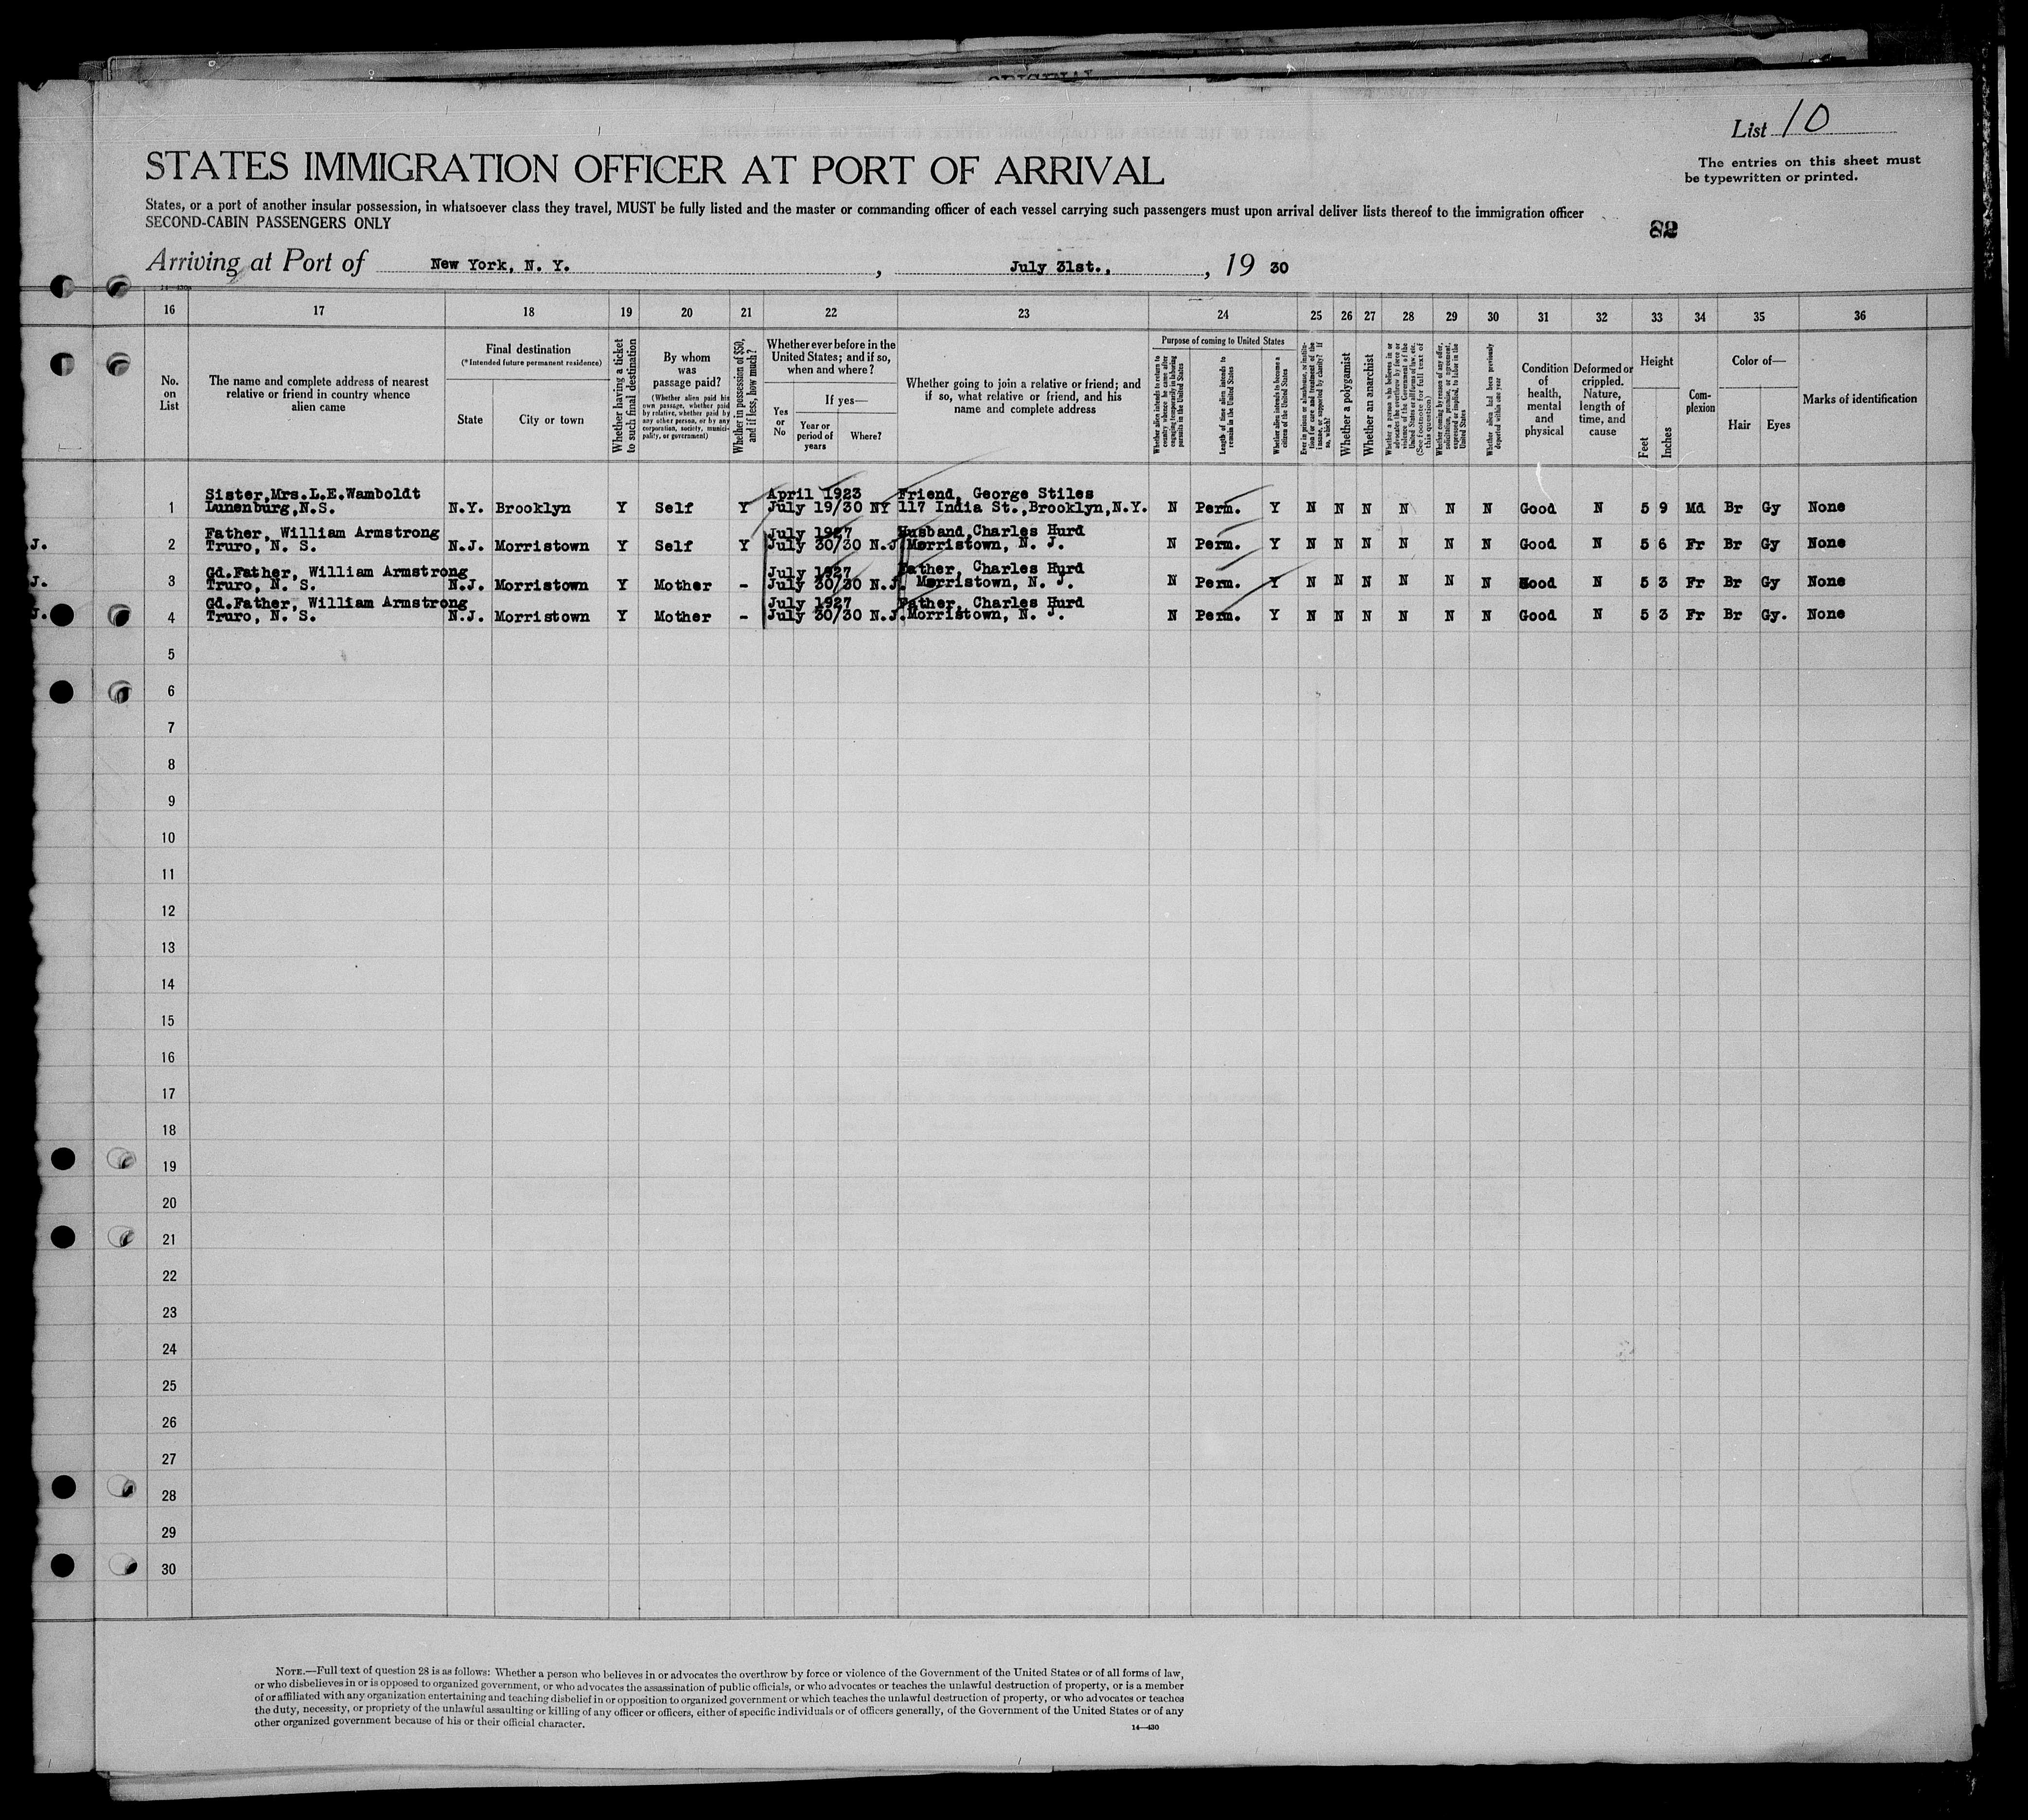 List 10
STATES IMMIGRATION OFFICER AT PORT OF ARRIVAL
The entries on this sheet must
be typewritten or printed.
States, or a port of another insular possession, in whatsoever class they travel, MUST be fully listed and the master or commanding officer of each vessel carrying such passengers must upon arrival deliver lists thereof to the immigration officer
SECOND-CABIN PASSENGERS ONLY
82
Arriving at Port of New York, N. Y. , July 31st., , 19 30
16 17 18 19 20 21 22 23 24 25 26 27 28 29 30 31 32 33 34 35 36
No. on List
The name and complete address of nearest relative or friend in country whence alien came
Final destination
(*Intended future permanent residence)
State
City or town
Whether having a ticket to such final destination
By whom was passage paid?
(Whether alien paid his own passage, whether paid by relative, whether paid by any other person, or by any corporation, society, municipality, or government)
Whether in possession of $50, and if less, how much?
Whether ever before in the United States; and if so, when and where?
Yes or No
If yes—
Year or period of years
Where?
Whether going to join a relative or friend; and if so, what relative or friend, and his name and complete address
Purpose of coming to United States
Whether alien intends to return to country whence he came after engaging temporarily in laboring pursuits in the United States
Length of time alien intends to remain in the United States
Whether alien intends to become a citizen of the United States
Ever in prison or almshouse, or institution for care and treatment of the insane, or supported by charity? If so, which?
Whether a polygamist
Whether an anarchist
Whether a person who believes in or advocates the overthrow by force or violence of the Government of the United States or all forms of law, etc. (See footnote for full text of this question)
Whether coming by reason of any offer, solicitation, promise, or agreement, expressed or implied, to labor in the United States
Whether alien had been previously deported within one year
Condition of health, mental and physical
Deformed or crippled. Nature, length of time, and cause
Height
Feet
Inches
Complexion
Color of—
Hair
Eyes
Marks of identification
Sister,Mrs.L.E.Wamboldt April 1923 Friend, George Stiles
1 Lunenburg,N.S. N.Y. Brooklyn Y Self Y July 19/30 NY 117 India St.,Brooklyn,N.Y. N Perm. Y N N N N N N Good N 5 9 Md Br Gy None
Father, William Armstrong July 1927 Husband,Charles Hurd
J. 2 Truro, N. S. N.J. Morristown Y Self Y July 30/30 N.J. Morristown, N. J. N Perm. Y N N N N N N Good N 5 6 Fr Br Gy None
Gd.Father, William Armstrong July 1927 Father, Charles Hurd
J. 3 Truro, N. S. N.J. Morristown Y Mother - July 30/30 N.J. Morristown, N. J. N Perm. Y N N N N N N Good N 5 3 Fr Br Gy None
Gd.Father, William Armstrong July 1927 Father, Charles Hurd
J. 4 Truro, N. S. N.J. Morristown Y Mother - July 30/30 N.J. Morristown, N. J. N Perm. Y N N N N N N Good N 5 3 Fr Br Gy. None
5
6
7
8
9
10
11
12
13
14
15
16
17
18
19
20
21
22
23
24
25
26
27
28
29
30
NOTE.—Full text of question 28 is as follows: Whether a person who believes in or advocates the overthrow by force or violence of the Government of the United States or of all forms of law,
or who disbelieves in or is opposed to organized government, or who advocates the assassination of public officials, or who advocates or teaches the unlawful destruction of property, or is a member
of or affiliated with any organization entertaining and teaching disbelief in or opposition to organized government or which teaches the unlawful destruction of property, or who advocates or teaches
the duty, necessity, or propriety of the unlawful assaulting or killing of any officer or officers, either of specific individuals or of officers generally, of the Government of the United States or of any
other organized government because of his or their official character.
14—430